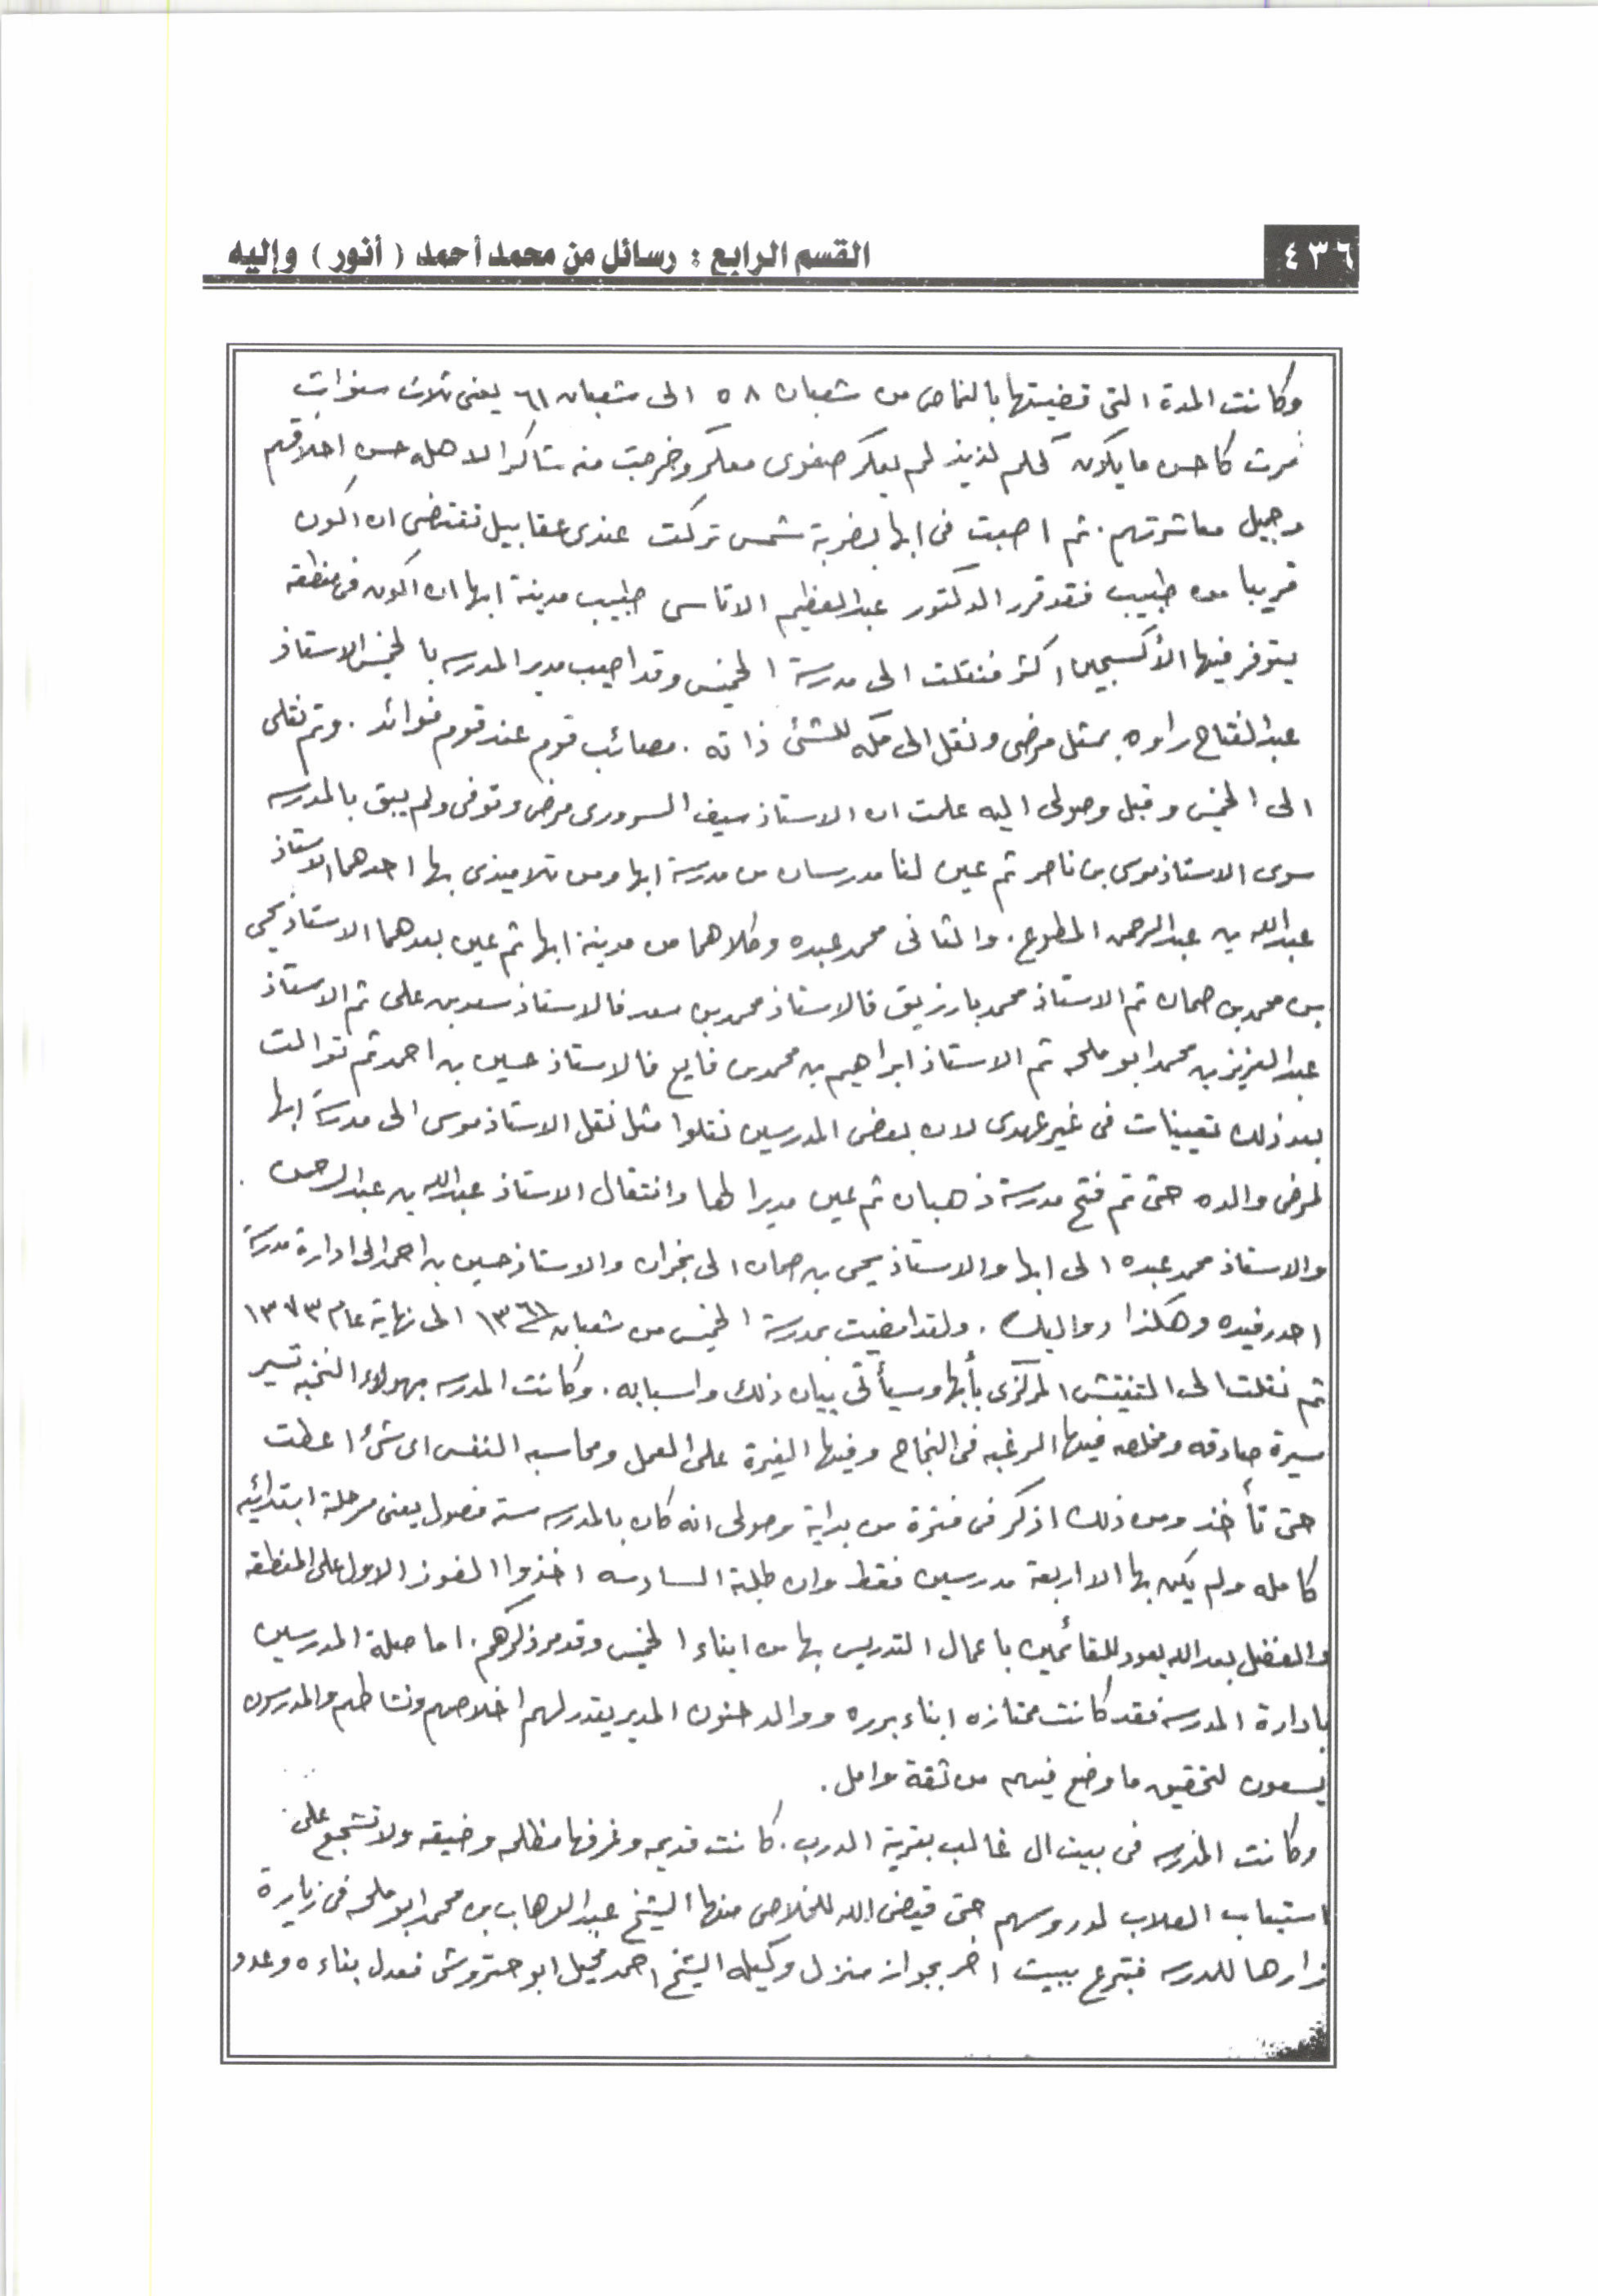 ٤٣٦
القسم الرابع : رسائل من محمد أحمد ( أنور ) وإليه
وكانت المدة التى قضيتها بالنماص من شعبان ٥٨ الى شعبان ٦١ يعنى ثلاث سنوات
مرت كاحسن ما يكون كحلم لذيذ لم يعكر صفوى معكر وخرجت منه شاكرا لاهله حسن اخلاقهم
وجميل معاشرتهم . ثم اصبت فى ابها بضربة شمس تركت عندى عقابيل تقتضى ان اكون
قريبا من طبيب فقد قرر الدكتور عبدالعظيم الاتاسى طبيب مدينة ابها ان اكون فى منطقه
يتوفر فيها الأكسجين اكثر فنقلت الى مدرسة الخميس وقد اصيب مدير المدرسه بالخميس الاستاذ
عبدالفتاح راوه بمثل مرضى ونقل الى مكه للشئ ذاته . مصائب قوم عند قوم فوائد . وتم نقلى
الى الخميس وقبل وصولى اليه علمت ان الاستاذ سيف السرورى مرض وتوفى ولم يبق بالمدرسه
سوى الاستاذ موسى بن ناصر ثم عين لنا مدرسان من مدرسة ابها ومن تلاميذى بها احدهما الاستاذ
عبدالله بن عبدالرحمن المطوع . والثانى محمد عبده وكلاهما من مدينة ابها ثم عين بعدهما الاستاذ يحى
بن محمد بن صمان ثم الاستاذ محمد بارزيق فالاستاذ محمد بن سعد فالاستاذ سعد بن على ثم الاستاذ
عبدالعزيز بن محمد ابو ملحه ثم الاستاذ ابراهيم بن محمد بن فايع فالاستاذ حسين بن احمد ثم توالت
بعد ذلك تعيينات فى غير عهدى لان بعض المدرسين نقلوا مثل نقل الاستاذ موسى الى مدرسة ابها
لمرض والده حتى تم فتح مدرسة ذهبان ثم عين مديرا لها وانتقال الاستاذ عبدالله بن عبدالرحمن
والاستاذ محمد عبده الى ابها والاستاذ يحى بن صمان الى نجران والاستاذ حسين بن احمد الى ادارة مدرسة
احد رفيده وهكذا دواليك . ولقد امضيت بمدرسة الخميس من شعبان ١٣٦١ الى نهاية عام ١٣٧٣
ثم نقلت الى التفتيش المركزى بأبها وسيأتى بيان ذلك واسبابه . وكانت المدرسه بهولاء النخبه تسير
سيرة صادقه ومخلصه فيها الرغبه فى النجاح وفيها الغيرة على العمل ومحاسبه النفس اى شئ اعطت
حتى تأخذ ومن ذلك اذكر فى فترة من بداية وصولى انه كان بالمدرسه ستة فصول يعنى مرحلة ابتدائيه
كامله ولم يكن بها الا اربعة مدرسين فقط وان طلبة السادسه اخذوا الفوز الاول على المنطقه
والفضل بعد الله يعود للقائمين باعمال التدريس بها من ابناء الخميس وقد مر ذكرهم . اما صلة المدرسين
بادارة المدرسه فقد كانت ممتازه ابناء برره ووالد حنون المدير يقدر لهم اخلاصهم ونشاطهم والمدرسون
يسعون لتحقيق ما وضع فيهم من ثقة وامل .
وكانت المدرسه فى بيت ال غالب بقرية الدرب . كانت قديمه وغرفها مظلمه وضيقه ولا تشجع على
استيعاب الطلاب لدروسهم حتى قيض الله للخلاص منها الشيخ عبدالوهاب بن محمد ابو ملحه فى زيارة
زارها للمدرسه فتبرع ببيت اخر بجوار منزل وكيله الشيخ احمد محيل ابو حتروش فعدل بناءه وعدد